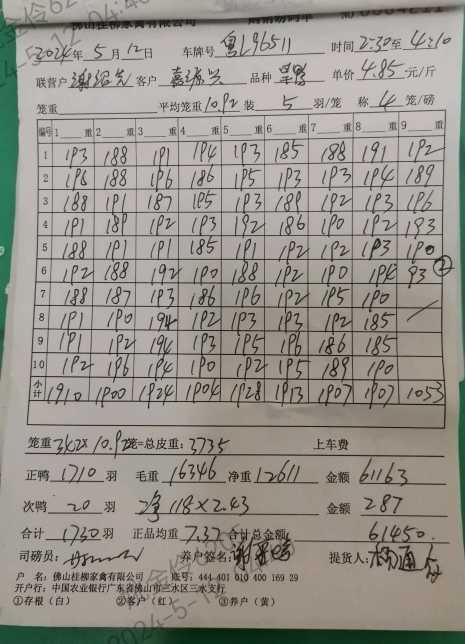 佛山桂柳家禽有限公司
2024年5月12日 车牌号 粤L96511 时间 2:30至4:10
联营户 客户 嘉源兴 品种 单价 4.85 元/斤
笼重 平均笼重 10.92 装 5 羽/笼 称 4 笼/磅
编号 1 重 2 重 3 重 4 重 5 重 6 重 7 重 8 重 9 重
1 193 188 191 194 193 185 188 191 192
2 196 188 196 186 195 193 193 194 189
3 188 191 187 195 193 189 192 193 196
4 191 189 192 193 192 186 190 192 193
5 188 191 191 185 191 192 192 193 190
6 192 188 192 190 188 192 190 194 93 ②
7 188 187 193 186 196 192 195 190
8 191 190 194 192 193 193 192 185
9 191 192 194 193 195 196 186 185
10 192 196 194 190 192 195 189 190
小计 1910 1900 1924 1904 1928 1913 1907 1907 1053
笼重 342×10.92 笼=总皮重: 3735 上车费
正鸭 1710 羽 毛重 16346 净重 12611 金额 61163
次鸭 20 羽 净 118×2.43 金额 287
合计 1730 羽 正品均重 7.37 合计总金额 61450.
司磅员: 养户签名: 提货人:
户 名: 佛山桂柳家禽有限公司 账号: 444 401 010 400 169 29
开户行: 中国农业银行广东省佛山市三水区三水支行
①存根（白） ②客户（红） ③养户（黄）